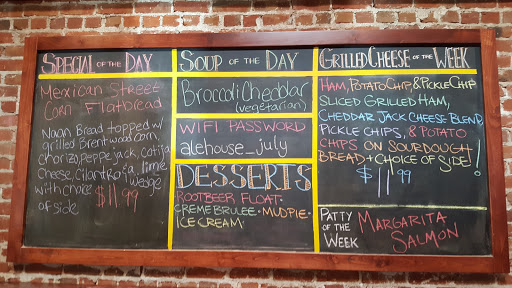 SPECIAL OF THE DAY
MEXICAN STREET
CORN FLATBREAD
Naan Bread topped w/
grilled Brentwood corn,
chorizo, pepperjack, cotija
cheese, cilantro & a lime
wedge
with choice
of side
$11.99
SOUP OF THE DAY
Broccoli Cheddar
(vegetarian)
WIFI PASSWORD
alehouse_july
DESSERTS
ROOTBEER FLOAT·
CREME BRULEE· MUDPIE·
ICE CREAM
GRILLED CHEESE OF THE WEEK
HAM, POTATO CHIP, & PICKLE CHIP
SLICED GRILLED HAM,
CHEDDAR JACK CHEESE BLEND,
PICKLE CHIPS, & POTATO
CHIPS ON SOURDOUGH
BREAD + CHOICE OF SIDE!
$11.99
PATTY
OF THE
WEEK
MARGARITA
SALMON